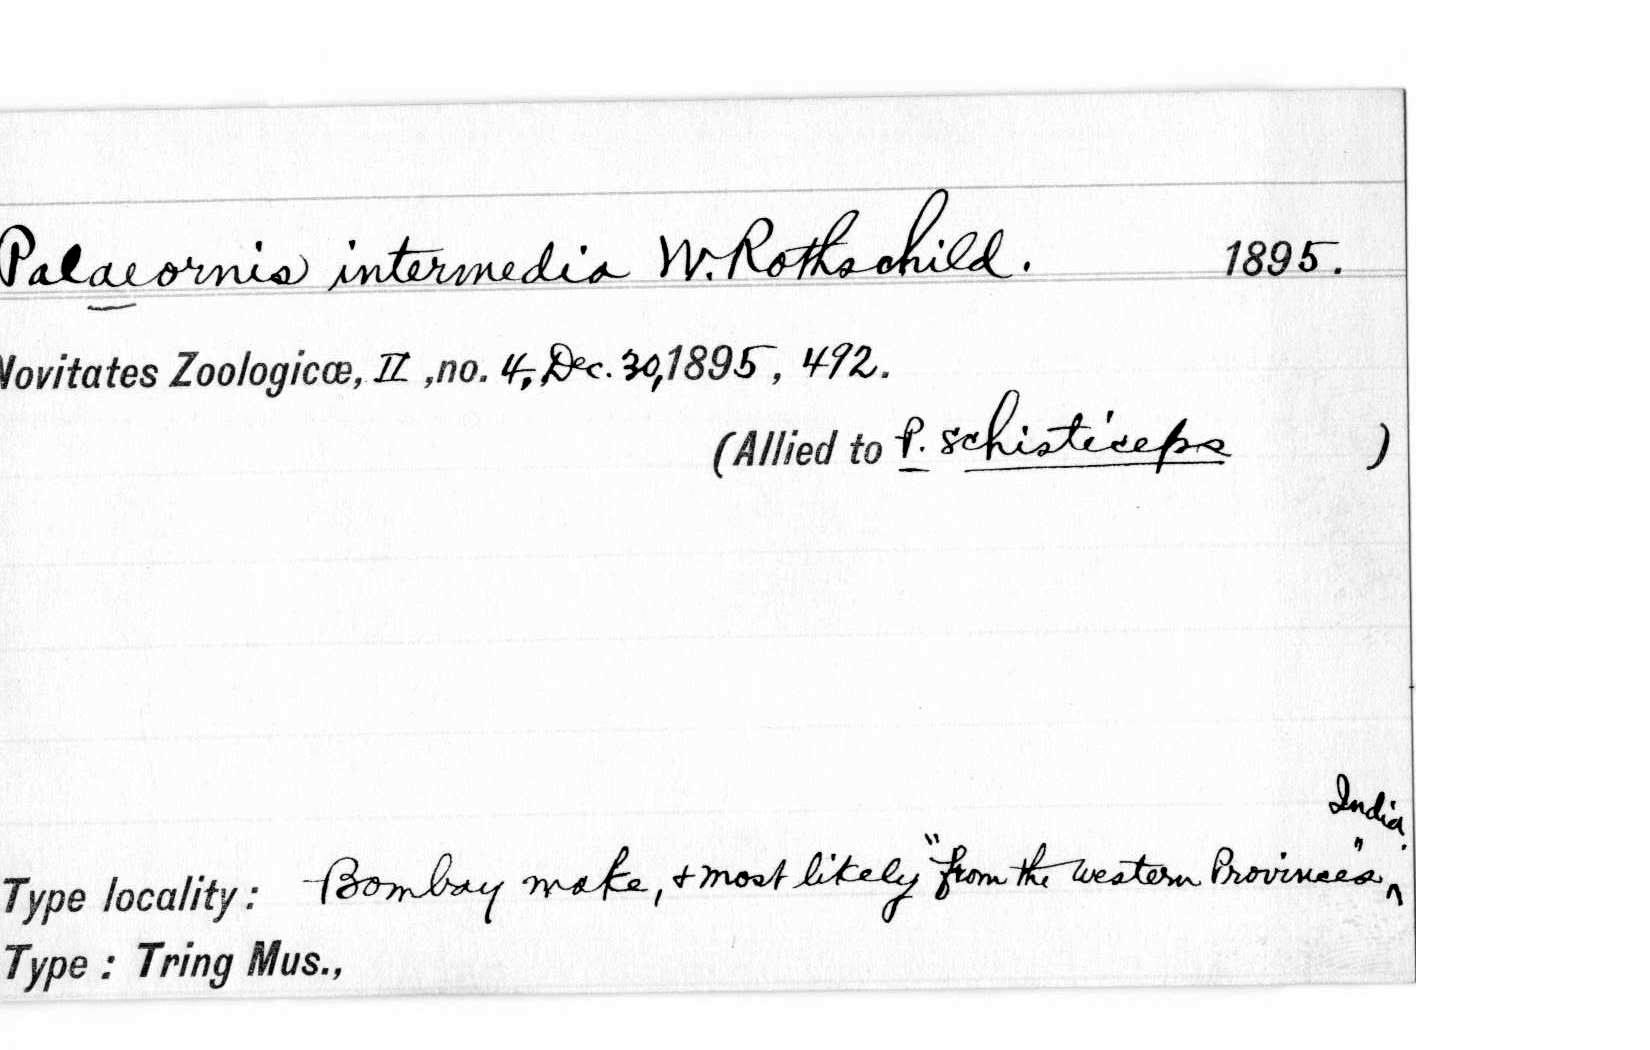 Palaeornis intermedia W. Rothschild. 1895.
Novitates Zoologicæ, II, no. 4, Dec. 30, 1895, 492.
(Allied to P. schisticeps )
India.
Type locality: Bombay make, & most likely "from the western Provinces" ^
Type: Tring Mus.,